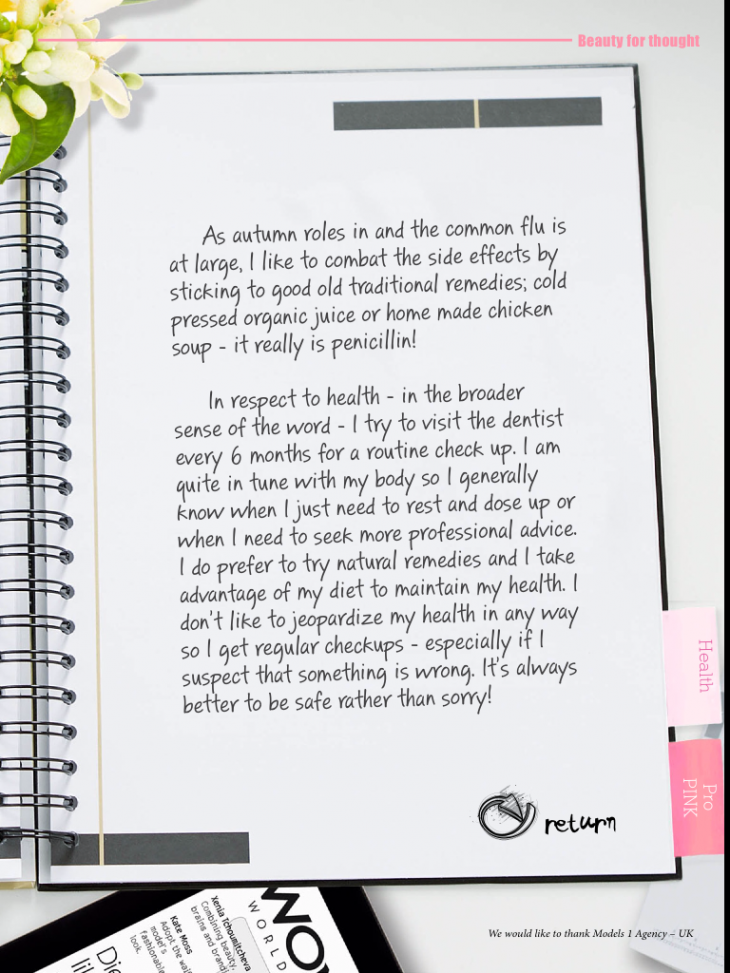 Beauty for thought
As autumn roles in and the common flu is
at large, I like to combat the side effects by
sticking to good old traditional remedies; cold
pressed organic juice or home made chicken
soup - it really is penicillin!
In respect to health - in the broader
sense of the word - I try to visit the dentist
every 6 months for a routine check up. I am
quite in tune with my body so I generally
know when I just need to rest and dose up or
when I need to seek more professional advice.
I do prefer to try natural remedies and I take
advantage of my diet to maintain my health. I
don't like to jeopardize my health in any way
so I get regular checkups - especially if I
suspect that something is wrong. It's always
better to be safe rather than sorry!
Health
Pro
PINK
return
We would like to thank Models 1 Agency – UK
WORLD
Xenia Tchoumitcheva
Combining beauty,
brains and brand
Kate Moss
Adopt the
model's
fashionable
look.